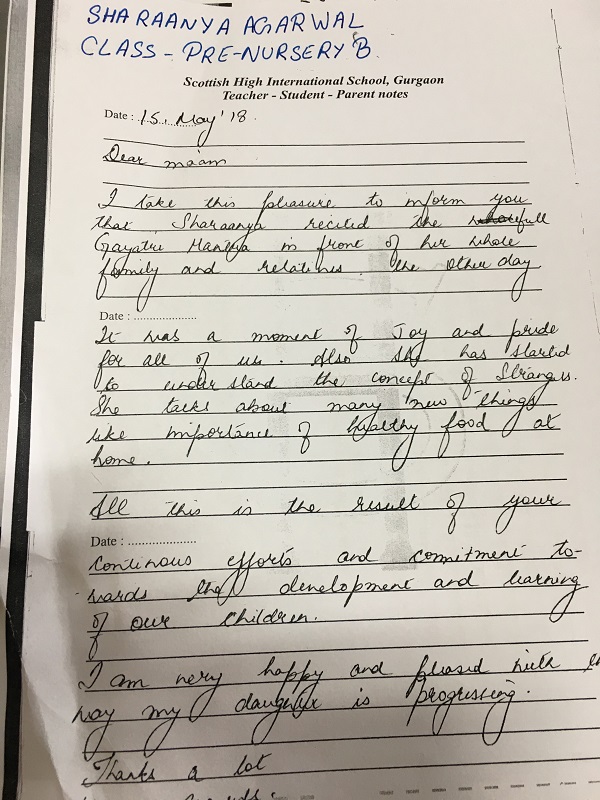 SHARAANYA AGARWAL
CLASS - PRE-NURSERY B
Scottish High International School, Gurgaon
Teacher - Student - Parent notes
Date : 15. May' 18.
Dear ma'am
I take this pleasure to inform you
that Sharaanya recited the full
Gayatri Mantra in front of her whole
family and relatives the other day
Date : ....................
It was a moment of Joy and pride
for all of us. Also she has started
to understand the concept of Strangers.
She talks about many new things
like importance of healthy food at
home.
All this is the result of your
Date : ....................
continous efforts and commitment to-
wards the development and learning
of our children.
I am very happy and pleased with
way my daughter is progressing.
Thanks a lot